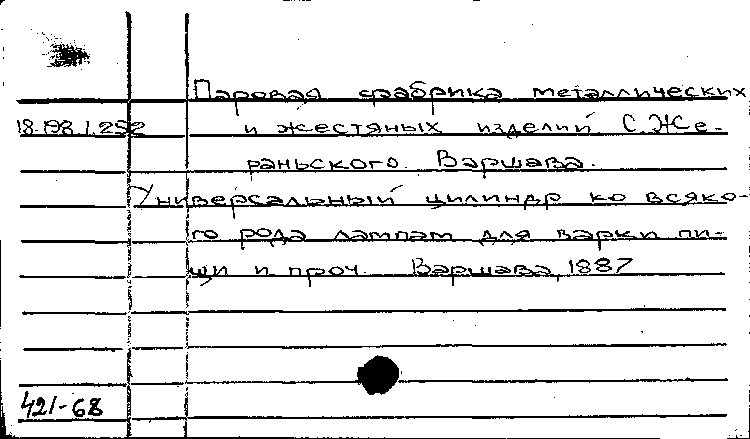 Паровая фабрика металлических
18.198.1.252 и жестяных изделий С. Же-
раньского. Варшава.
Универсальный цилиндр ко всяко-
го рода лампам для варки пи-
щи и проч. Варшава, 1887
421-68